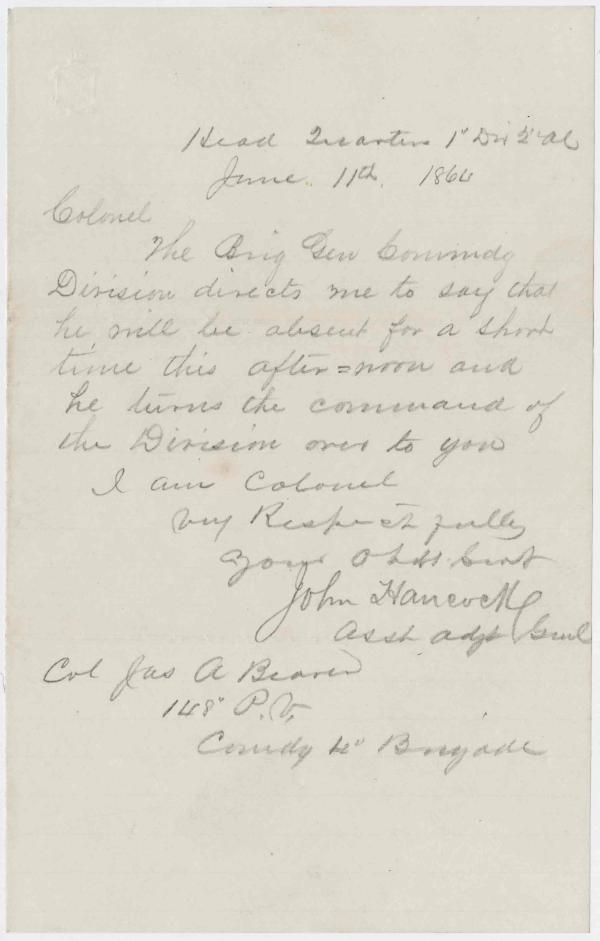 Head Quarters 1" Div 2" AC
June 11th. 1864
Colonel
The Brig Gen Commdg
Division directs me to say that
he will be absent for a short
time this after=noon and
he turns the command of
the Division over to you
I am Colonel
Very Respectfully
Your Obdt Servt
John Hancock
Asst Adjt Genl
Col Jas A Beaver
148" P.V.
Comdg 4" Brigade